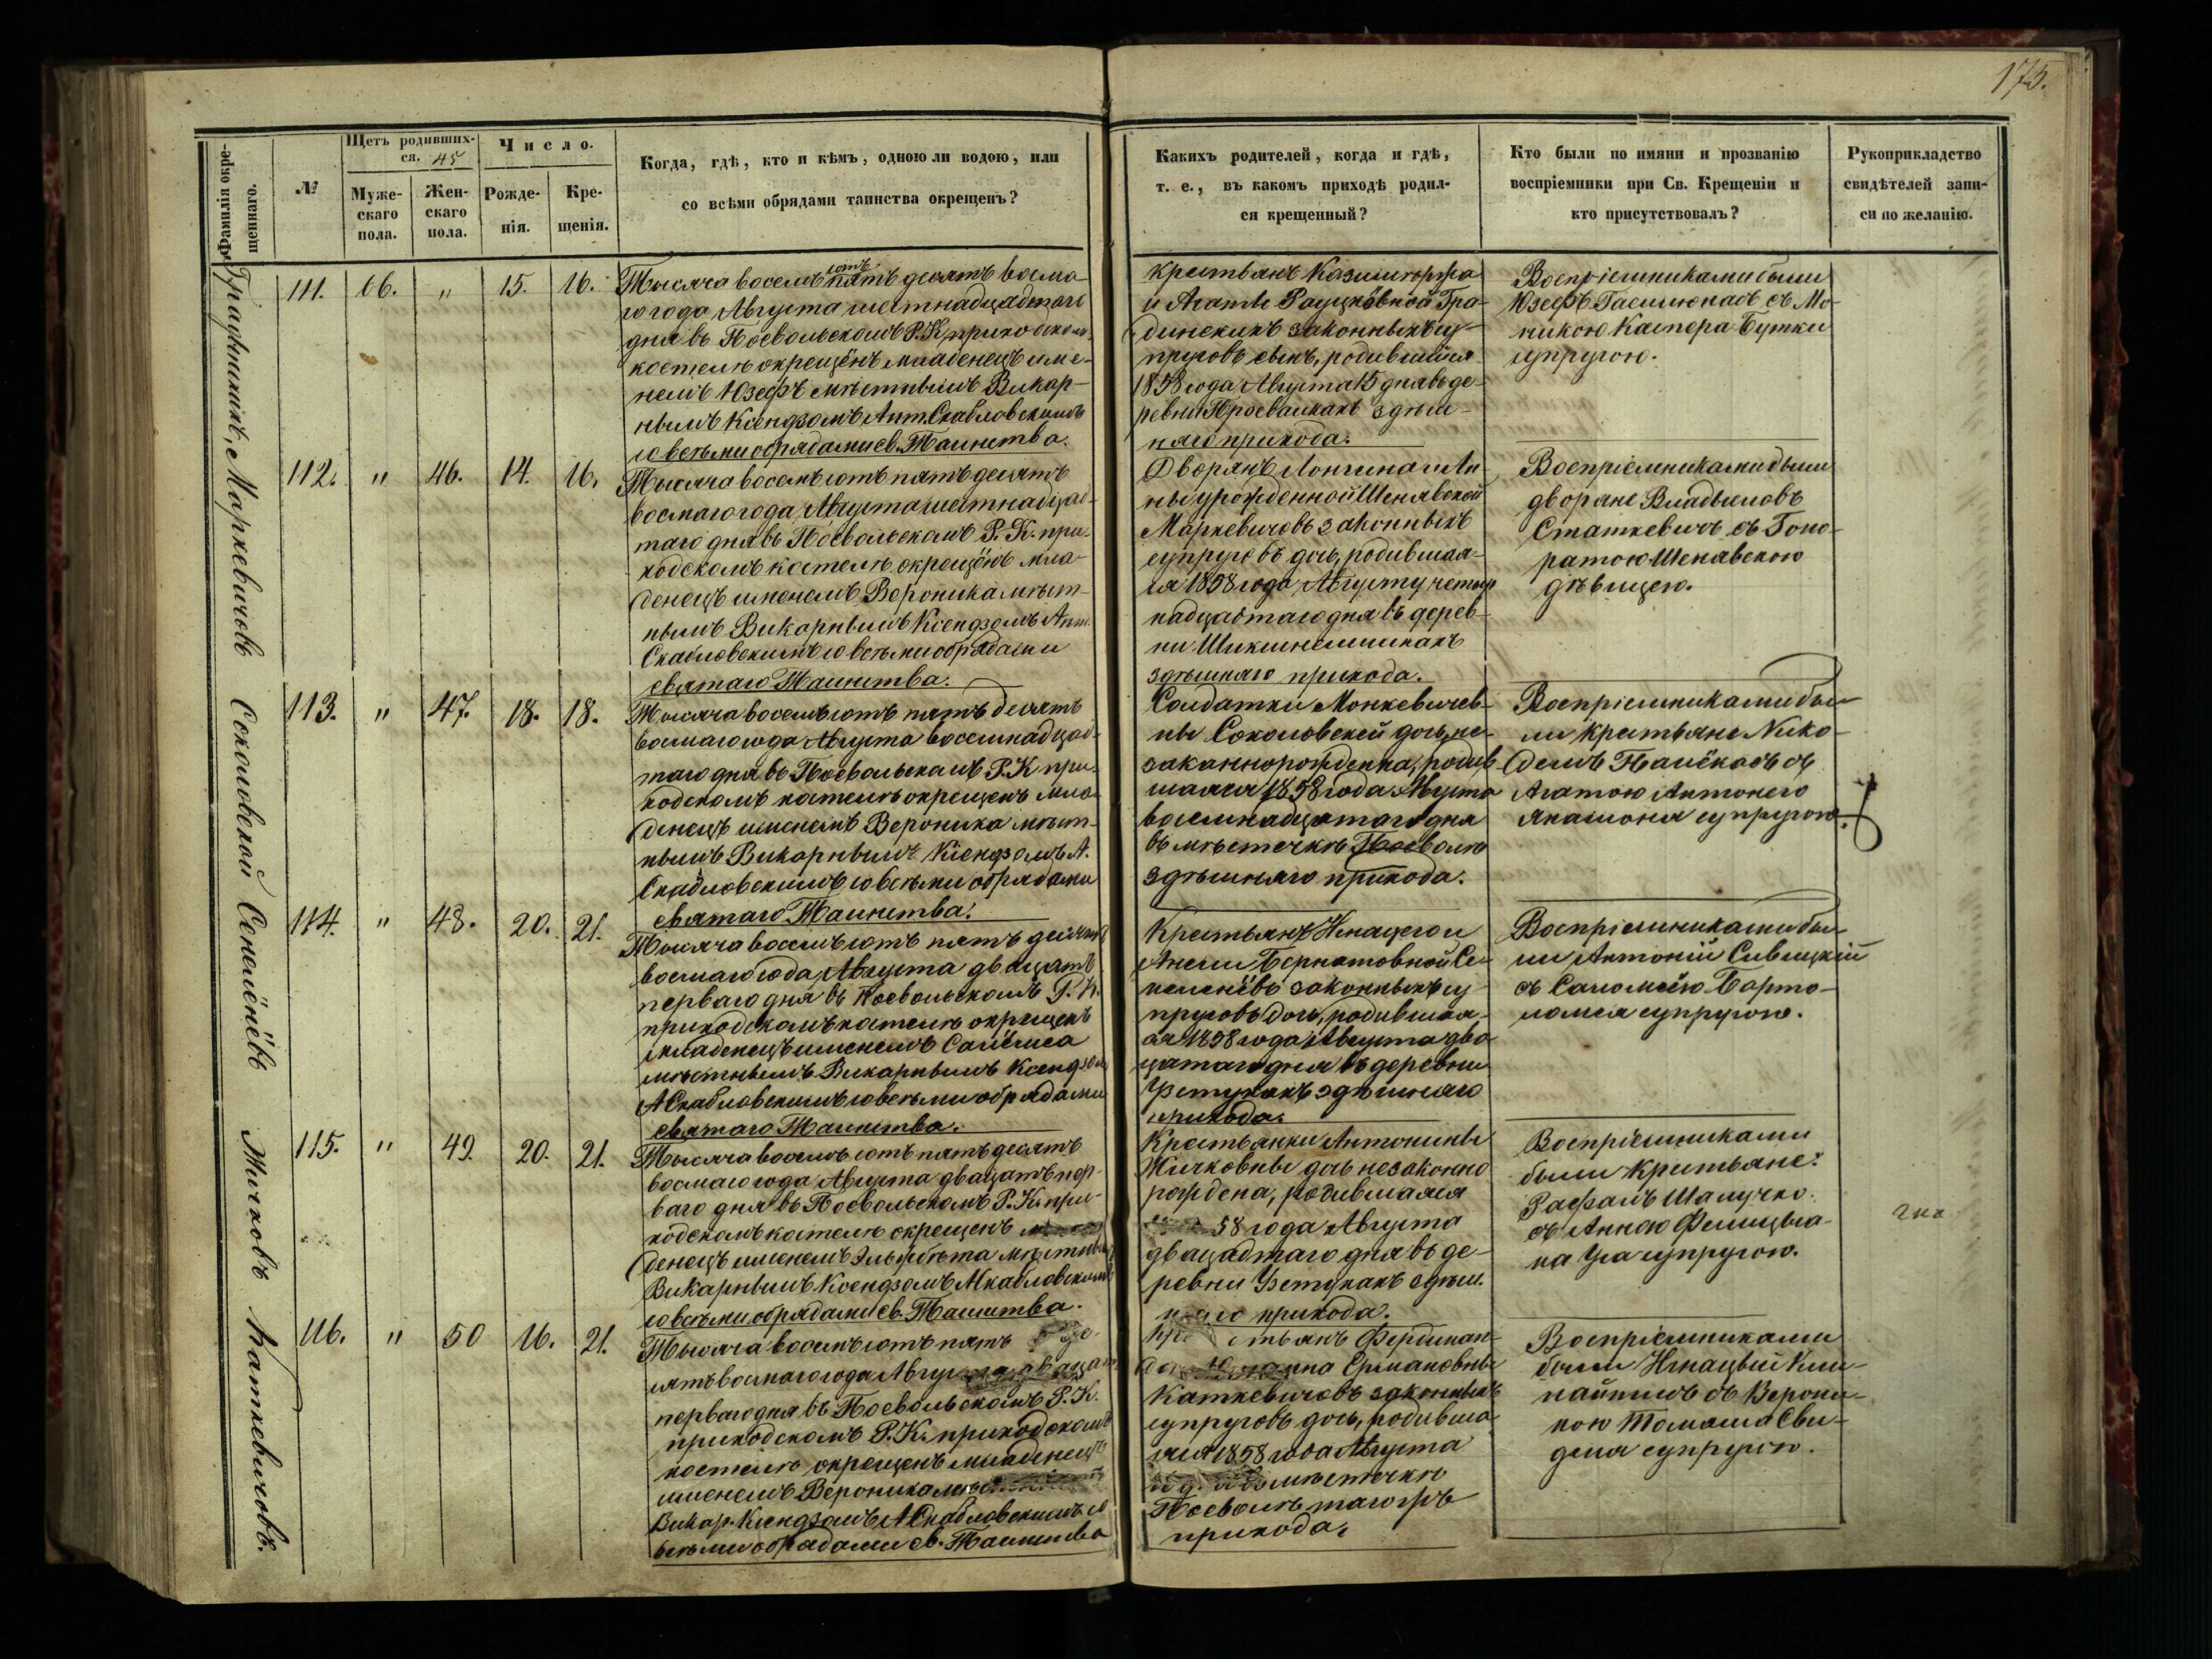 175.
Фамилія окрещеннаго.
№
Щетъ родивших-
ся. 45
Муже-
скаго
пола.
Жен-
скаго
пола.
Число.
Рожде-
нія.
Кре-
щенія.
Когда, гдѣ, кто и кѣмъ, одною ли водою, или
со всѣми обрядами таинства окрещенъ?
Какихъ родителей, когда и гдѣ,
т. е., въ какомъ приходѣ родил-
ся крещенный?
Кто были по имяни и прозванію
воспріемники при Св. Крещеніи и
кто присутствовалъ?
Рукоприкладство
свидѣтелей запи-
си по желанію.
111. 66. " 15. 16.
Тысяча восемь сотъ пять десятъ восма-
го года Августа шестнадцадтаго
дня въ Поевольскомъ Р. К. приходском
костелѣ окрещёнъ младенецъ име-
немъ Юзефъ мѣстнымъ Викар-
нымъ Ксендзомъ Ант. Скабловскимъ
со всѣми обрядами св. Таинства.
Крестьянъ Казимержа
и Агаты Рауцкёвной Гра-
динскихъ законныхъ су-
пруговъ сынъ, родившійся
1858 года Августа 15 дня въ де-
ревни Проевалкахъ здѣш-
няго прихода.
Воспріемниками были
Юзефъ Гасилюнасъ съ Мо-
никою Каспера Буткя
супругою.
112. " 46. 14. 16.
Маркевичовъ
Тысяча восемь сотъ пять десятъ
восмаго года Августа шестнадцад-
таго дня въ Поевольскомъ Р. К. при-
ходскомъ костелѣ окрещёнъ мла-
денецъ именемъ Вероника мѣст-
нымъ Викарнымъ Ксендзомъ Ант.
Скабловскимъ со всѣми обрядами
святаго Таинства.
Дворянъ Лонгина и Ан-
ны урожденной Шенявской
Маркевичовъ законныхъ
супруговъ дочь, родившая-
ся 1858 года Августу четыр
надцадтаго дня въ дерев-
ни Шикшнелишкахъ
здѣшняго прихода.
Воспріемниками были
дворяне Владыславъ
Статкевичъ съ Гоно-
ратою Шенявскою
дѣвицею.
113. " 47. 18. 18.
Соколовской
Тысяча восемь сотъ пять десятъ
восмаго года Августа восемнадцад-
таго дня въ Поевольскомъ Р. К. при-
ходскомъ костелѣ окрещенъ мла-
денецъ именемъ Вероника мѣст-
нымъ Викарнымъ Ксендзомъ А.
Скабловскимъ со всѣми обрядами
святаго Таинства.
Солдатки Монкевичев-
ны Соколовской дочь, не-
законнорожденна, родив-
шаяся 1858 года Августа
восемнадцатаго дня
въ мѣстечкѣ Поеволѣ
здѣшняго прихода.
Воспріемниками бы-
ли крестьяне Нико-
демъ Палёкасъ съ
Агатою Антонего
супругою.
114. " 48. 20. 21.
Семенёвъ
Тысяча восемь сотъ пять десятъ
восмаго года Августа двацать
перваго дня въ Поевольскомъ Р. К.
приходскомъ костелѣ окрещенъ
младенецъ именемъ Салёмея
мѣстнымъ Викарнымъ Ксендзом
А Скабловскимъ со всѣми обрядами
святаго Таинства.
Крестьянъ Игнацего и
Анели Бернатовной Се-
менёвъ законныхъ су-
пруговъ дочь, родившая-
ся 1858 года Августа два-
цатаго дня въ деревни
Устукахъ здѣшняго
прихода.
Воспріемниками бы-
ли Антоній Сивицкій
съ Саломеею Барто-
ломея супругою.
115. " 49. 20. 21.
Жичковъ
Тысяча восемь сотъ пять десятъ
восмаго года Августа двацать пер-
ваго дня въ Поевольскомъ Р. К. при-
ходскомъ костелѣ окрещенъ
денецъ именемъ Эльжбѣта мѣстным
Викарнымъ Ксендзомъ А Скабловским
со всѣми обрядами св. Таинства.
Крестьянки Антонины
Жичковны дочь незаконно
рождена, родившаяся
58 года Августа
двацадтаго дня въ де-
ревни Устукахъ здѣш-
няго прихода.
Воспріемниками
были крестьяне:
Рафалъ Шалучко
съ Анною Фелицыа-
на супругою.
116. " 50 16. 21.
Каткевичовъ.
Тысяча восемь сотъ пять де-
сятъ восмаго года Августа двацать
перваго дня въ Поевольскомъ Р. К.
приходскомъ Р. К. приходскомъ
костелѣ окрещенъ младенецъ
именемъ Вероника
Викар. Ксендзомъ А Скабловскимъ со
всѣми обрядами св. Таинства
Крестьянъ Фердинан-
да Ермановны
Каткевичовъ законныхъ
супруговъ дочь, родивша-
яся 1858 года Августа
въ мѣстечкѣ
Поеволѣ тагожъ
прихода.
Воспріемниками
были Игнацый Кли-
съ Верони-
кою Томаша Сви-
супругою.